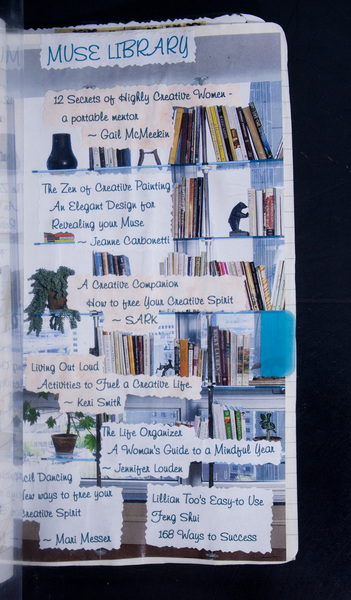 MUSE LIBRARY
12 Secrets of Highly Creative Women -
a portable mentor
~ Gail McMeekin
The Zen of Creative Painting
An Elegant Design for
Revealing your Muse
~ Jeanne Carbonetti
A Creative Companion
How to free Your Creative Spirit
~ SARK
Living Out Loud
Activities to Fuel a Creative Life.
~ Keri Smith
The Life Organizer
A Woman's Guide to a Mindful Year
~ Jennifer Louden
Dancing
ways to free your
Creative Spirit
~ Mari Messer
Lillian Too's Easy-to Use
Feng Shui
168 Ways to Success